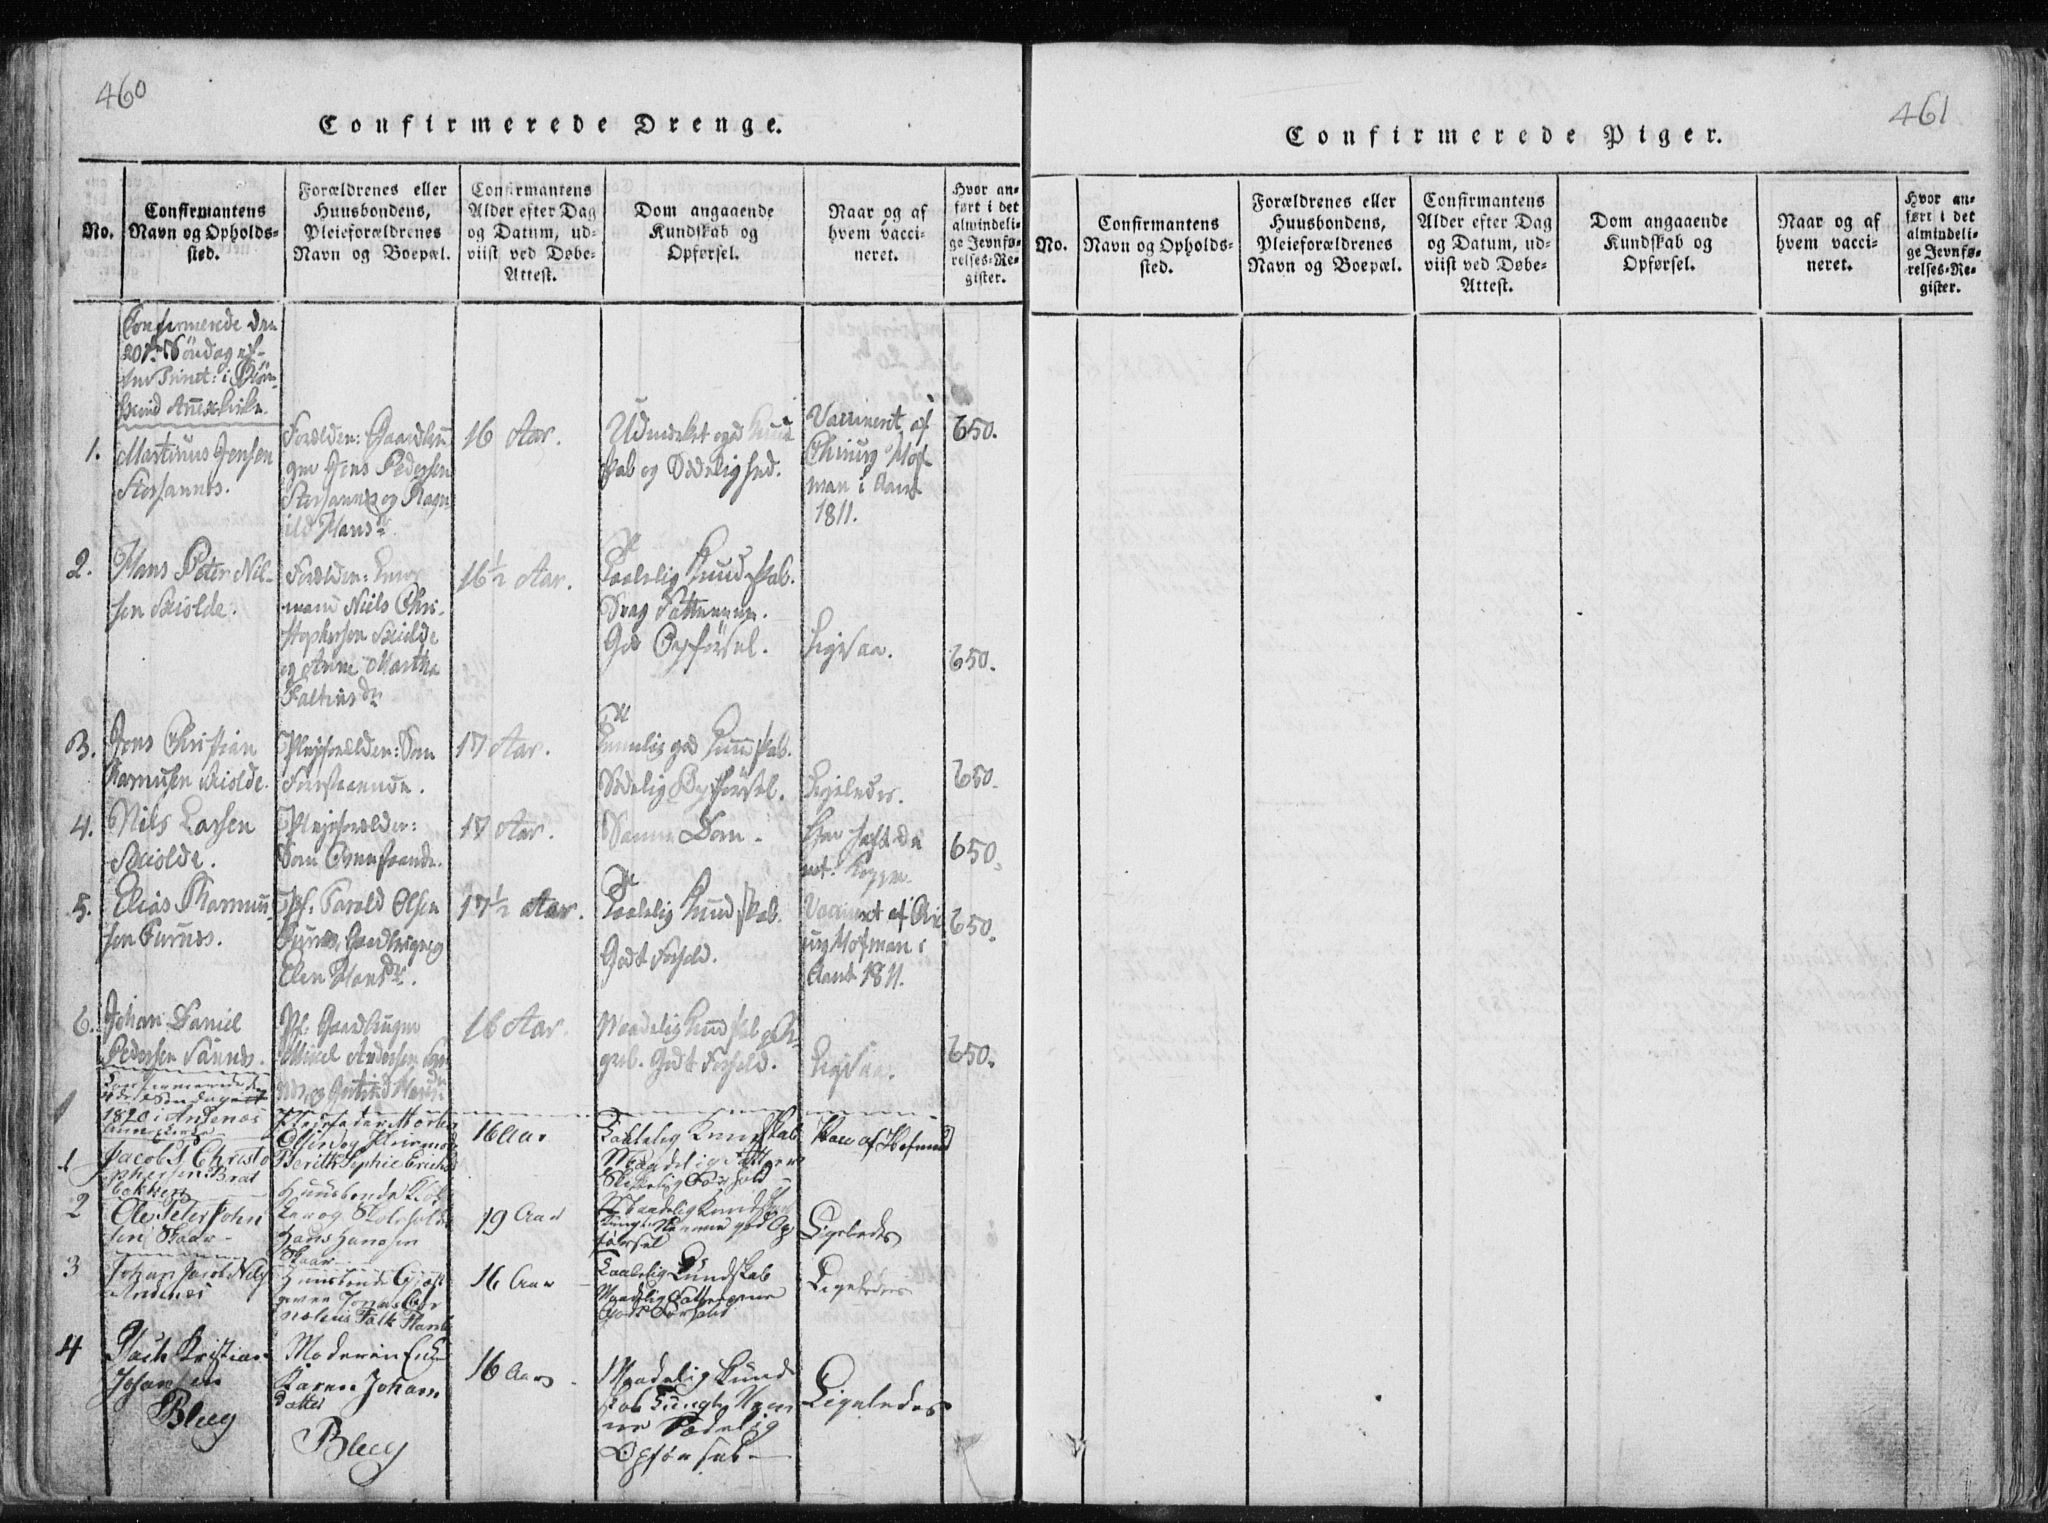 460
Confirmerede Drenge.
No.
Confirmantens
Navn og Opholds-
sted.
Forældrenes eller
Huusbondens,
Pleieforældrenes
Navn og Boepæl.
Confirmantens
Alder efter Dag
og Datum, ud-
viist ved Døbe-
Attest.
Dom angaaende
Kundskab og
Opførsel.
Naar og af
hvem vacci-
neret.
Hvor an-
ført i det
almindeli-
ge Jevnfø-
relses-Re-
gister.
Confirmerede den
20de Søndag ef-
ter Trinit: i
Annexkirke.
1.
Martinus Jensen
Forælder: Gaardbru
ger Jens Pedersen
og Ragn
ild Hansdr
16 Aar.
Udmerket god Kund
skab og Sædelighed.
Vaccinert af
Chirurg Hof
man i Aaret
1811.
650.
2.
Hans Peter Nil-
sen Skiolde.
Forælder:
mand Niels Chri-
stophersen Skiolde
og Anne Martha
dr
16½ Aar.
Taalelig Kundskab.
Svag Fatteevne.
God Opførsel.
Ligesaa.
650.
3.
Jens Christian
Rasmusen Skiolde.
Plejeforælder: Som
Forestaaende.
17 Aar.
Temmelig god Kundskab.
Sædelig Opførsel.
Ligeledes.
650.
4.
Nils Larsen
Skiolde.
Plejeforælder:
Som Ovenstaaende.
17 Aar.
Samme Dom.
Har havt de
nat: Kopper.
650.
5.
Elias Rasmu-
sen Furnes.
Pf: Parold Olsen
Furnes, Gaardbruger og
Elen Hansdr.
17½ Aar.
Taalelig Kundskab.
Godt Forhold.
Vaccinert af Chir
urg Hofman i
Aaret 1811.
650.
6.
Johan Daniel
Pedersen Sannes.
Pf: Gaardbruger
Mikel Andersen San
nes og Hansdr
16 Aar.
Maadelig Kundskab
Godt Forhold.
Ligesaa.
650.
Confirmerede den
Søndag
1820 i Andenes
1
Jacob Christo
phersen Brat
bakken
Plejefader Morten
Ellingog
Berith Sophie Erichsd
16 Aar
Taalelig Kundskab
Maadelig Fatteevne
Skikkelig Forhold
Vac af Hofmand
2
Ole Peter John
sen Skaar
Huusbonde Klok
ker og Skoleholder
Hans Hanssen
Skaar
19 Aar
Maadelig Kundskab
Ringe Nemme god Op
førsel
Ligeledes
3
Johan Jacob Nils
Andenes
Huusbonde Gjæst
giver Jonas Cor
nelius Falk
16 Aar
Taalelig Kundskab
Maadelig Fatteevne
Godt Forhold
Ligeledes
4
Kristian
Johansen
Bleeg
Moderen Enke
Karen Johans
datter
Bleeg
16 Aar
Maadelig Kund
skab Ringe Nem
me Sædelig
Opførsel
Ligeledes
461
Confirmerede Piger.
No.
Confirmantens
Navn og Opholds-
sted.
Forældrenes eller
Huusbondens,
Pleieforældrenes
Navn og Boepæl.
Confirmantens
Alder efter Dag
og Datum, ud-
viist ved Døbe-
Attest.
Dom angaaende
Kundskab og
Opførsel.
Naar og af
hvem vacci-
neret.
Hvor an-
ført i det
almindeli-
ge Jevnfø-
relses-Re-
gister.